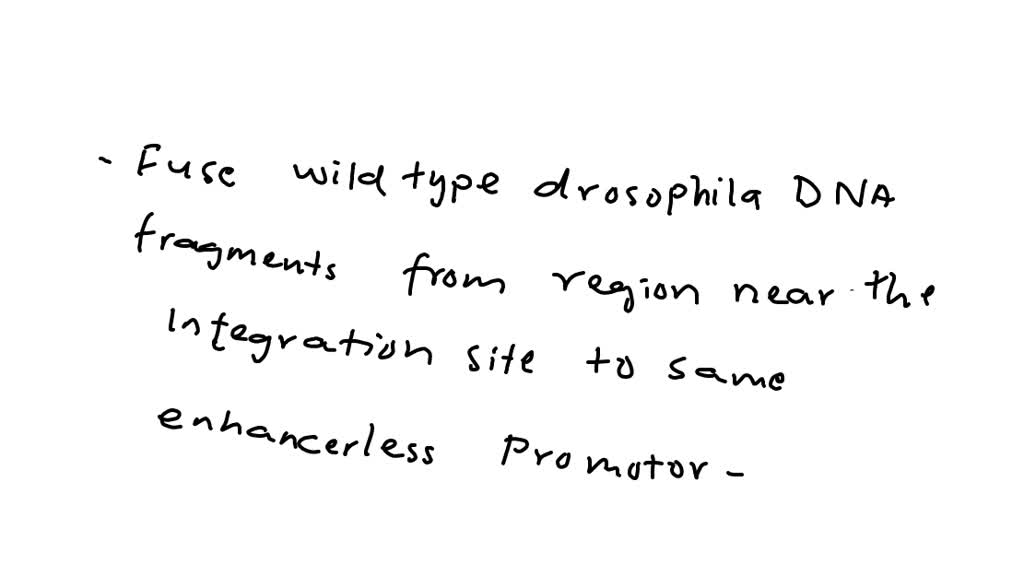 - Fuse wild type drosophila DNA
fragments from region near the
Integration site to same
enhancerless Promotor -